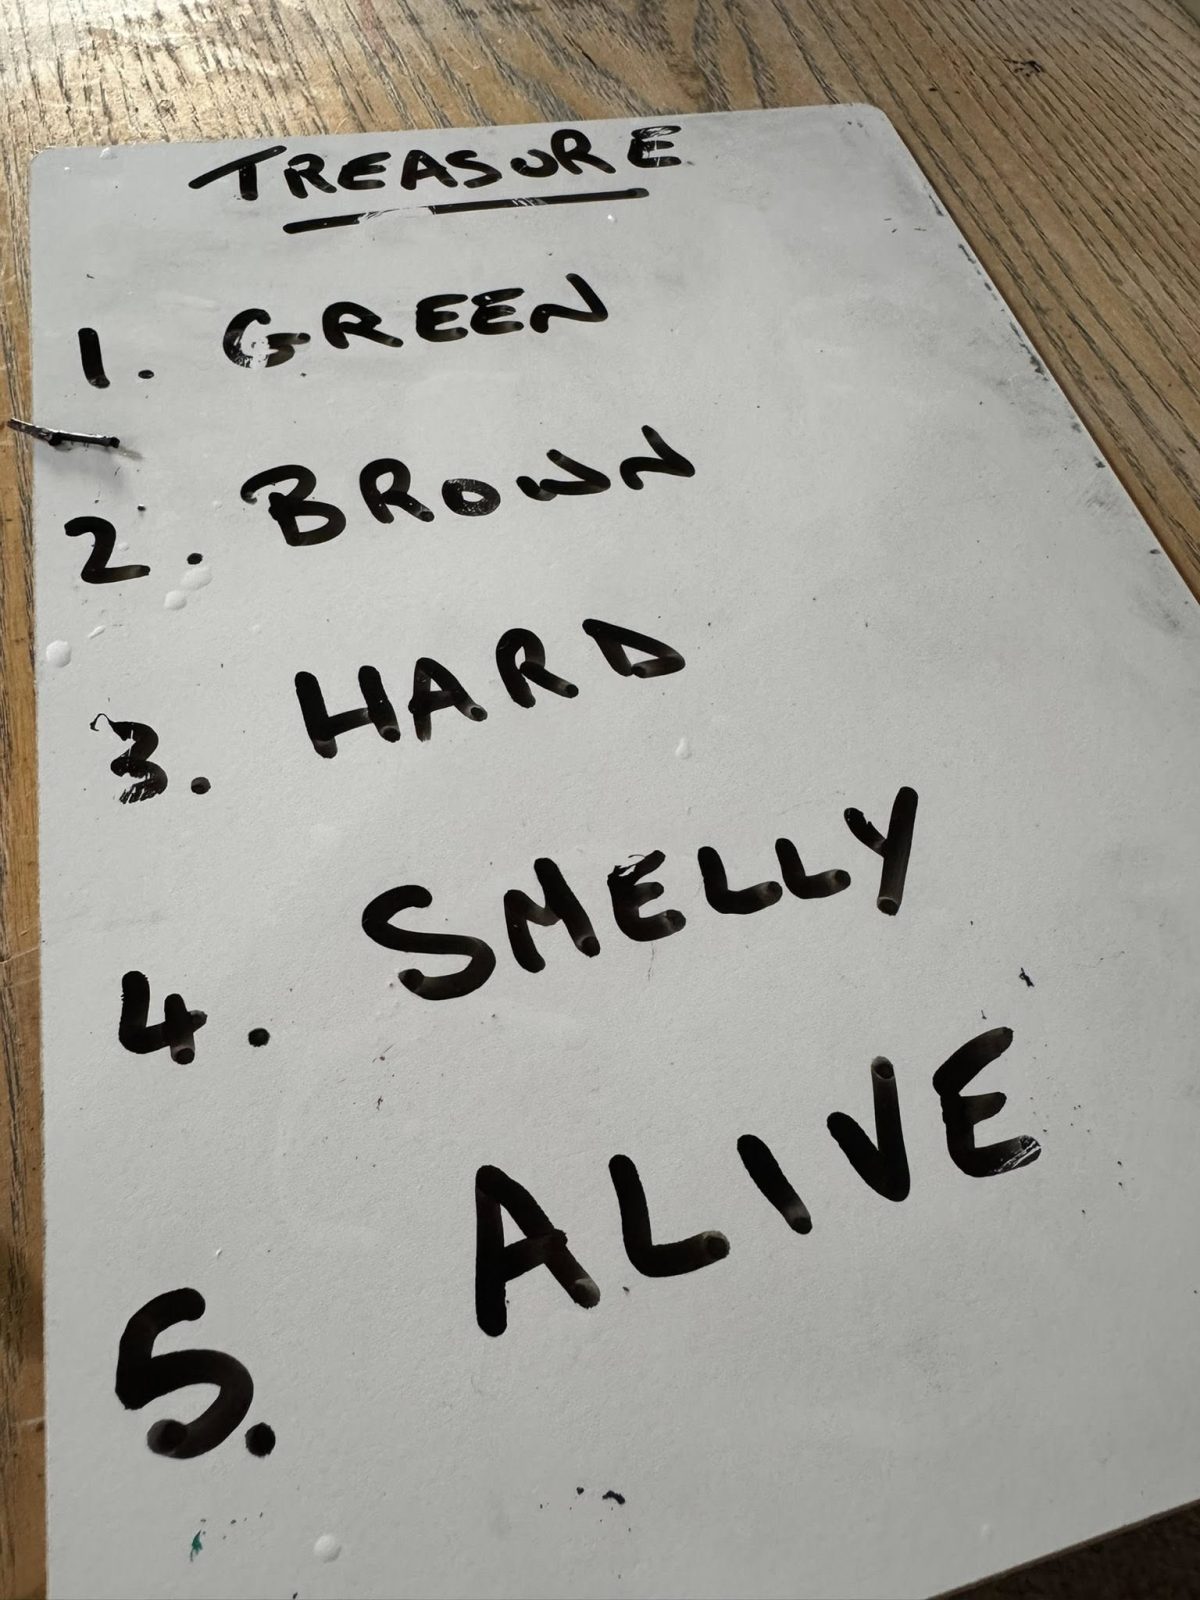 TREASURE
1. GREEN
2. BROWN
3. HARD
4. SMELLY
5. ALIVE